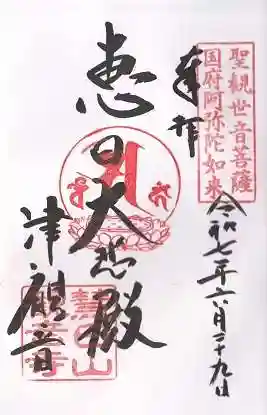 聖観世音菩薩
国府阿弥陀如来
奉拝
令和七年六月二十九日
恵日大悲殿
津観音